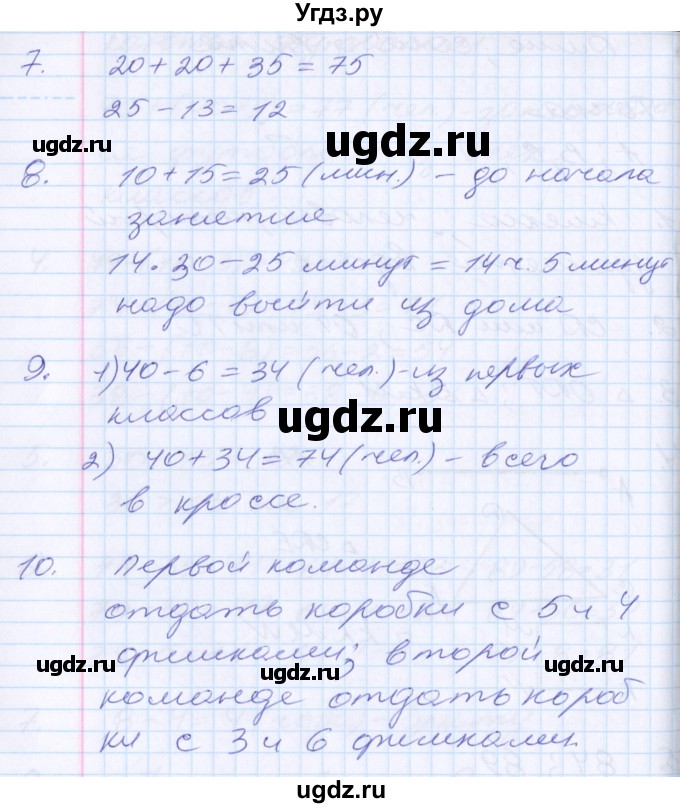 Угдз.ру
7. 20 + 20 + 35 = 75
25 - 13 = 12
ugdz.ru ugdz.ru
ugdz.ru
8. 10 + 15 = 25 (мин.) - до начала
занятия
14.30 - 25 минут = 14 ч. 5 минут
надо выйти из дома
9. 1) 40 - 6 = 34 (чел.) - из первых
классов
ugdz.ru
2) 40 + 34 = 74 (чел.) - всего
в кроссе.
10. Первой команде
отдать коробки с 5 и 4
фишками; второй
ugdz.ru ugdz.ru ugdz.ru
команде отдать короб
ки с 3 и 6 фишками.
ugdz.ru